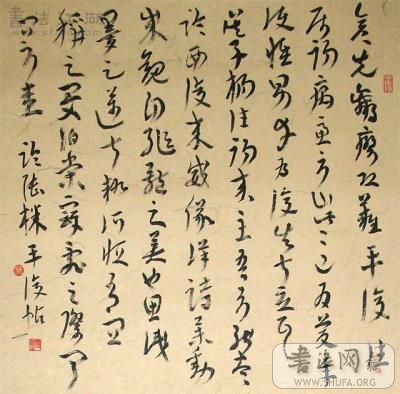 彥先羸瘵恐難平復往
屬初病慮不止此此已為慶承
使唯男幸為復失前憂耳
吳子楊往初來主吾不能盡
臨西復來威儀詳跱舉動
成觀自軀體之美也思識
量之邁前執所恒有宜
稱之夏伯榮寇亂之際聞
問不悉 臨陸機平復帖
书法网
WWW.SHUFA.ORG